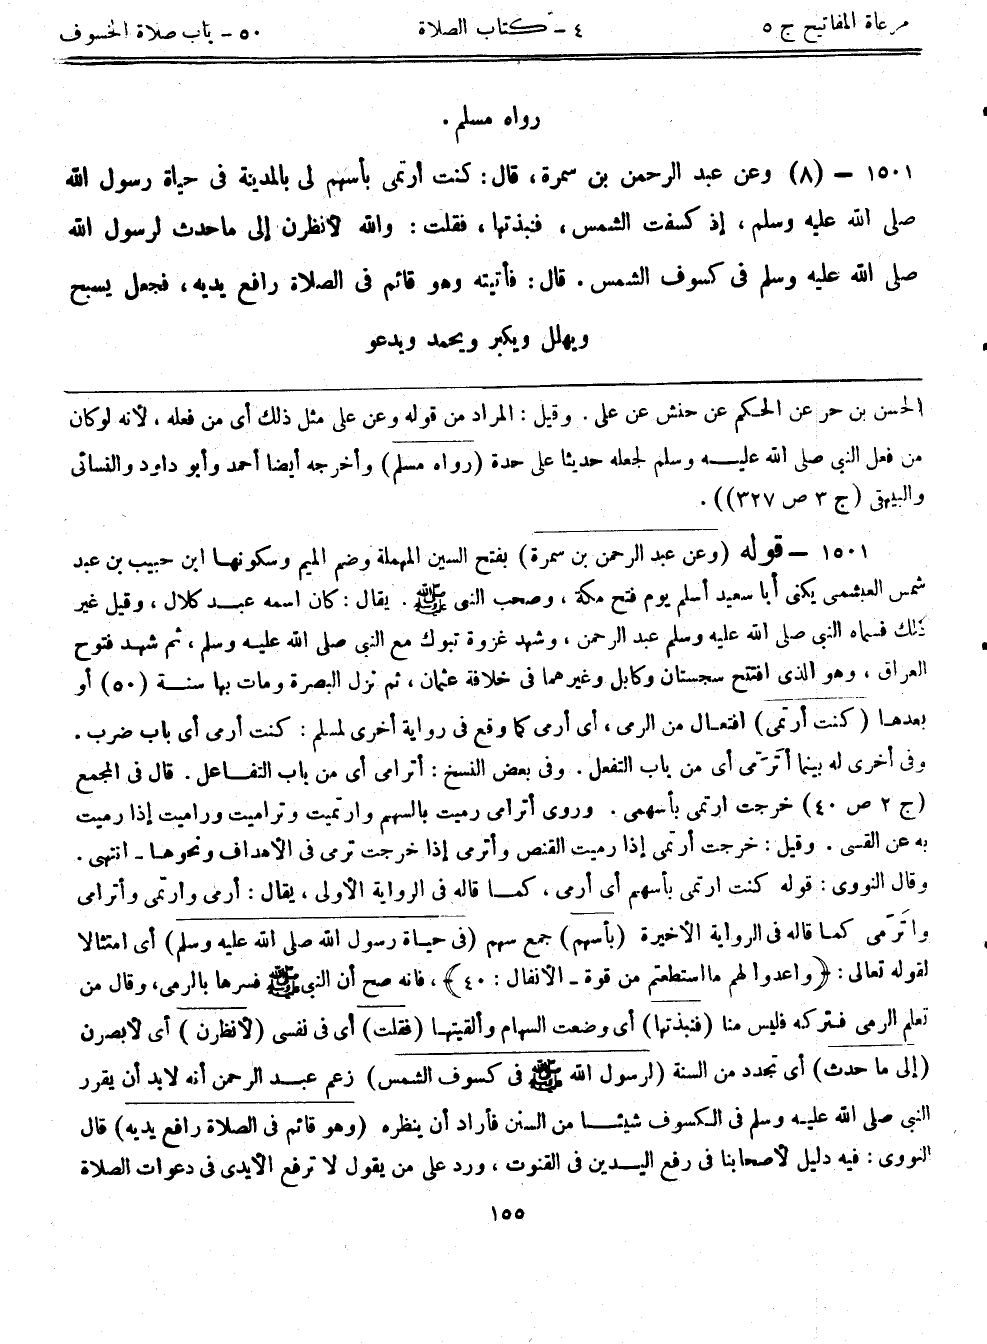 مرعاة المفاتيح ج ٥ ٤ - كتاب الصلاة ٥٠ - باب صلاة الخسوف
رواه مسلم .
١٥٠١ – (٨) وعن عبد الرحمن بن سمرة ، قال : كنت أرتمى بأسهم لى بالمدينة فى حياة رسول الله
صلى الله عليه وسلم ، إذ كسفت الشمس ، فنبذتها ، فقلت : والله لأنظرن إلى ماحدث لرسول الله
صلى الله عليه وسلم فى كسوف الشمس . قال : فأتيته وهو قائم فى الصلاة رافع يديه ، فجعل يسبح
ويهلل ويكبر ويحمد ويدعو
الحسن بن حر عن الحكم عن حنش عن على . وقيل : المراد من قوله وعن على مثل ذلك أى من فعله ، لأنه لوكان
من فعل النبى صلى الله عليه وسلم لجعله حديثا على حدة (رواه مسلم) وأخرجه أيضا أحمد وأبو داود والنسائى
والبيهقى (ج ٣ ص ٣٢٧)) .
١٥٠١ – قوله (وعن عبد الرحمن بن سمرة) بفتح السين المهملة وضم الميم وسكونها ابن حبيب بن عبد
شمس العبشمى يكنى أبا سعيد أسلم يوم فتح مكة ، وصحب النبى ﷺ . يقال : كان اسمه عبد كلال ، وقيل غير
ذلك فسماه النبى صلى الله عليه وسلم عبد الرحمن ، وشهد غزوة تبوك مع النبى صلى الله عليه وسلم ، ثم شهد فتوح
العراق ، وهو الذى افتتح سجستان وكابل وغيرهما فى خلافة عثمان ، ثم نزل البصرة ومات بها سنة (٥٠) أو
بعدها (كنت أرتمى) افتعال من الرمى ، أى أرمى كما وقع فى رواية أخرى لمسلم : كنت أرمى أى باب ضرب .
وفى أخرى له بينما أترَمّى أى من باب التفعل . وفى بعض النسخ : أترامى أى من باب التفاعل . قال فى المجمع
(ج ٢ ص ٤٠) خرجت ارتمى بأسهمى . وروى أترامى رميت بالسهم وارتميت وتراميت وراميت إذا رميت
به عن القسى . وقيل : خرجت أرتمى إذا رميت القنص وأترمى إذا خرجت ترمى فى الأهداف ونحوها - انتهى .
وقال النووى : قوله كنت ارتمى بأسهم أى أرمى ، كما قاله فى الرواية الأولى ، يقال : أرمى وأرتمى وأترامى
واترَمّى كما قاله فى الرواية الأخيرة (بأسهم) جمع سهم (فى حياة رسول الله صلى الله عليه وسلم) أى امتثالا
لقوله تعالى : ﴿واعدوا لهم مااستطعتم من قوة - الأنفال : ٤٠﴾ ، فانه صح أن النبى ﷺ فسرها بالرمى، وقال من
تعلم الرمى فتركه فليس منا (فنبذتها) أى وضعت السهام وألقيتها (فقلت) أى فى نفسى (لأنظرن) أى لأبصرن
(إلى ما حدث) أى تجدد من السنة (لرسول الله ﷺ فى كسوف الشمس) زعم عبد الرحمن أنه لابد أن يقرر
النبى صلى الله عليه وسلم فى الكسوف شيئا من السنن فأراد أن ينظره (وهو قائم فى الصلاة رافع يديه) قال
النووى : فيه دليل لأصحابنا فى رفع اليدين فى القنوت ، ورد على من يقول لا ترفع الأيدى فى دعوات الصلاة
١٥٥